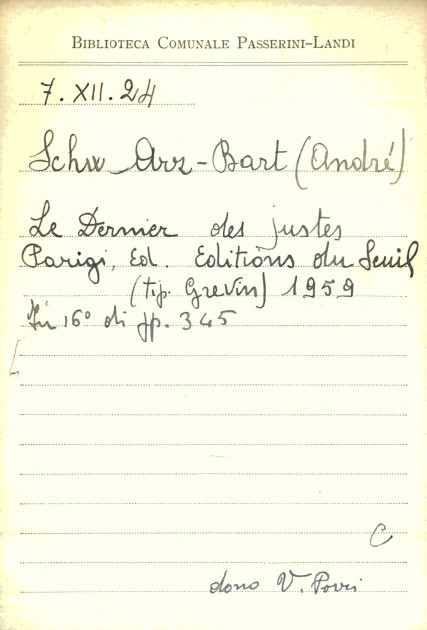 BIBLIOTECA COMUNALE PASSERINI-LANDI
7. XII. 24
Schw Arz-Bart (André)
Le Dernier des justes
Parigi, Ed. Editiòns du Seuil
(tip. Grevin) 1959
In 16° di pp. 345
C
dono V.